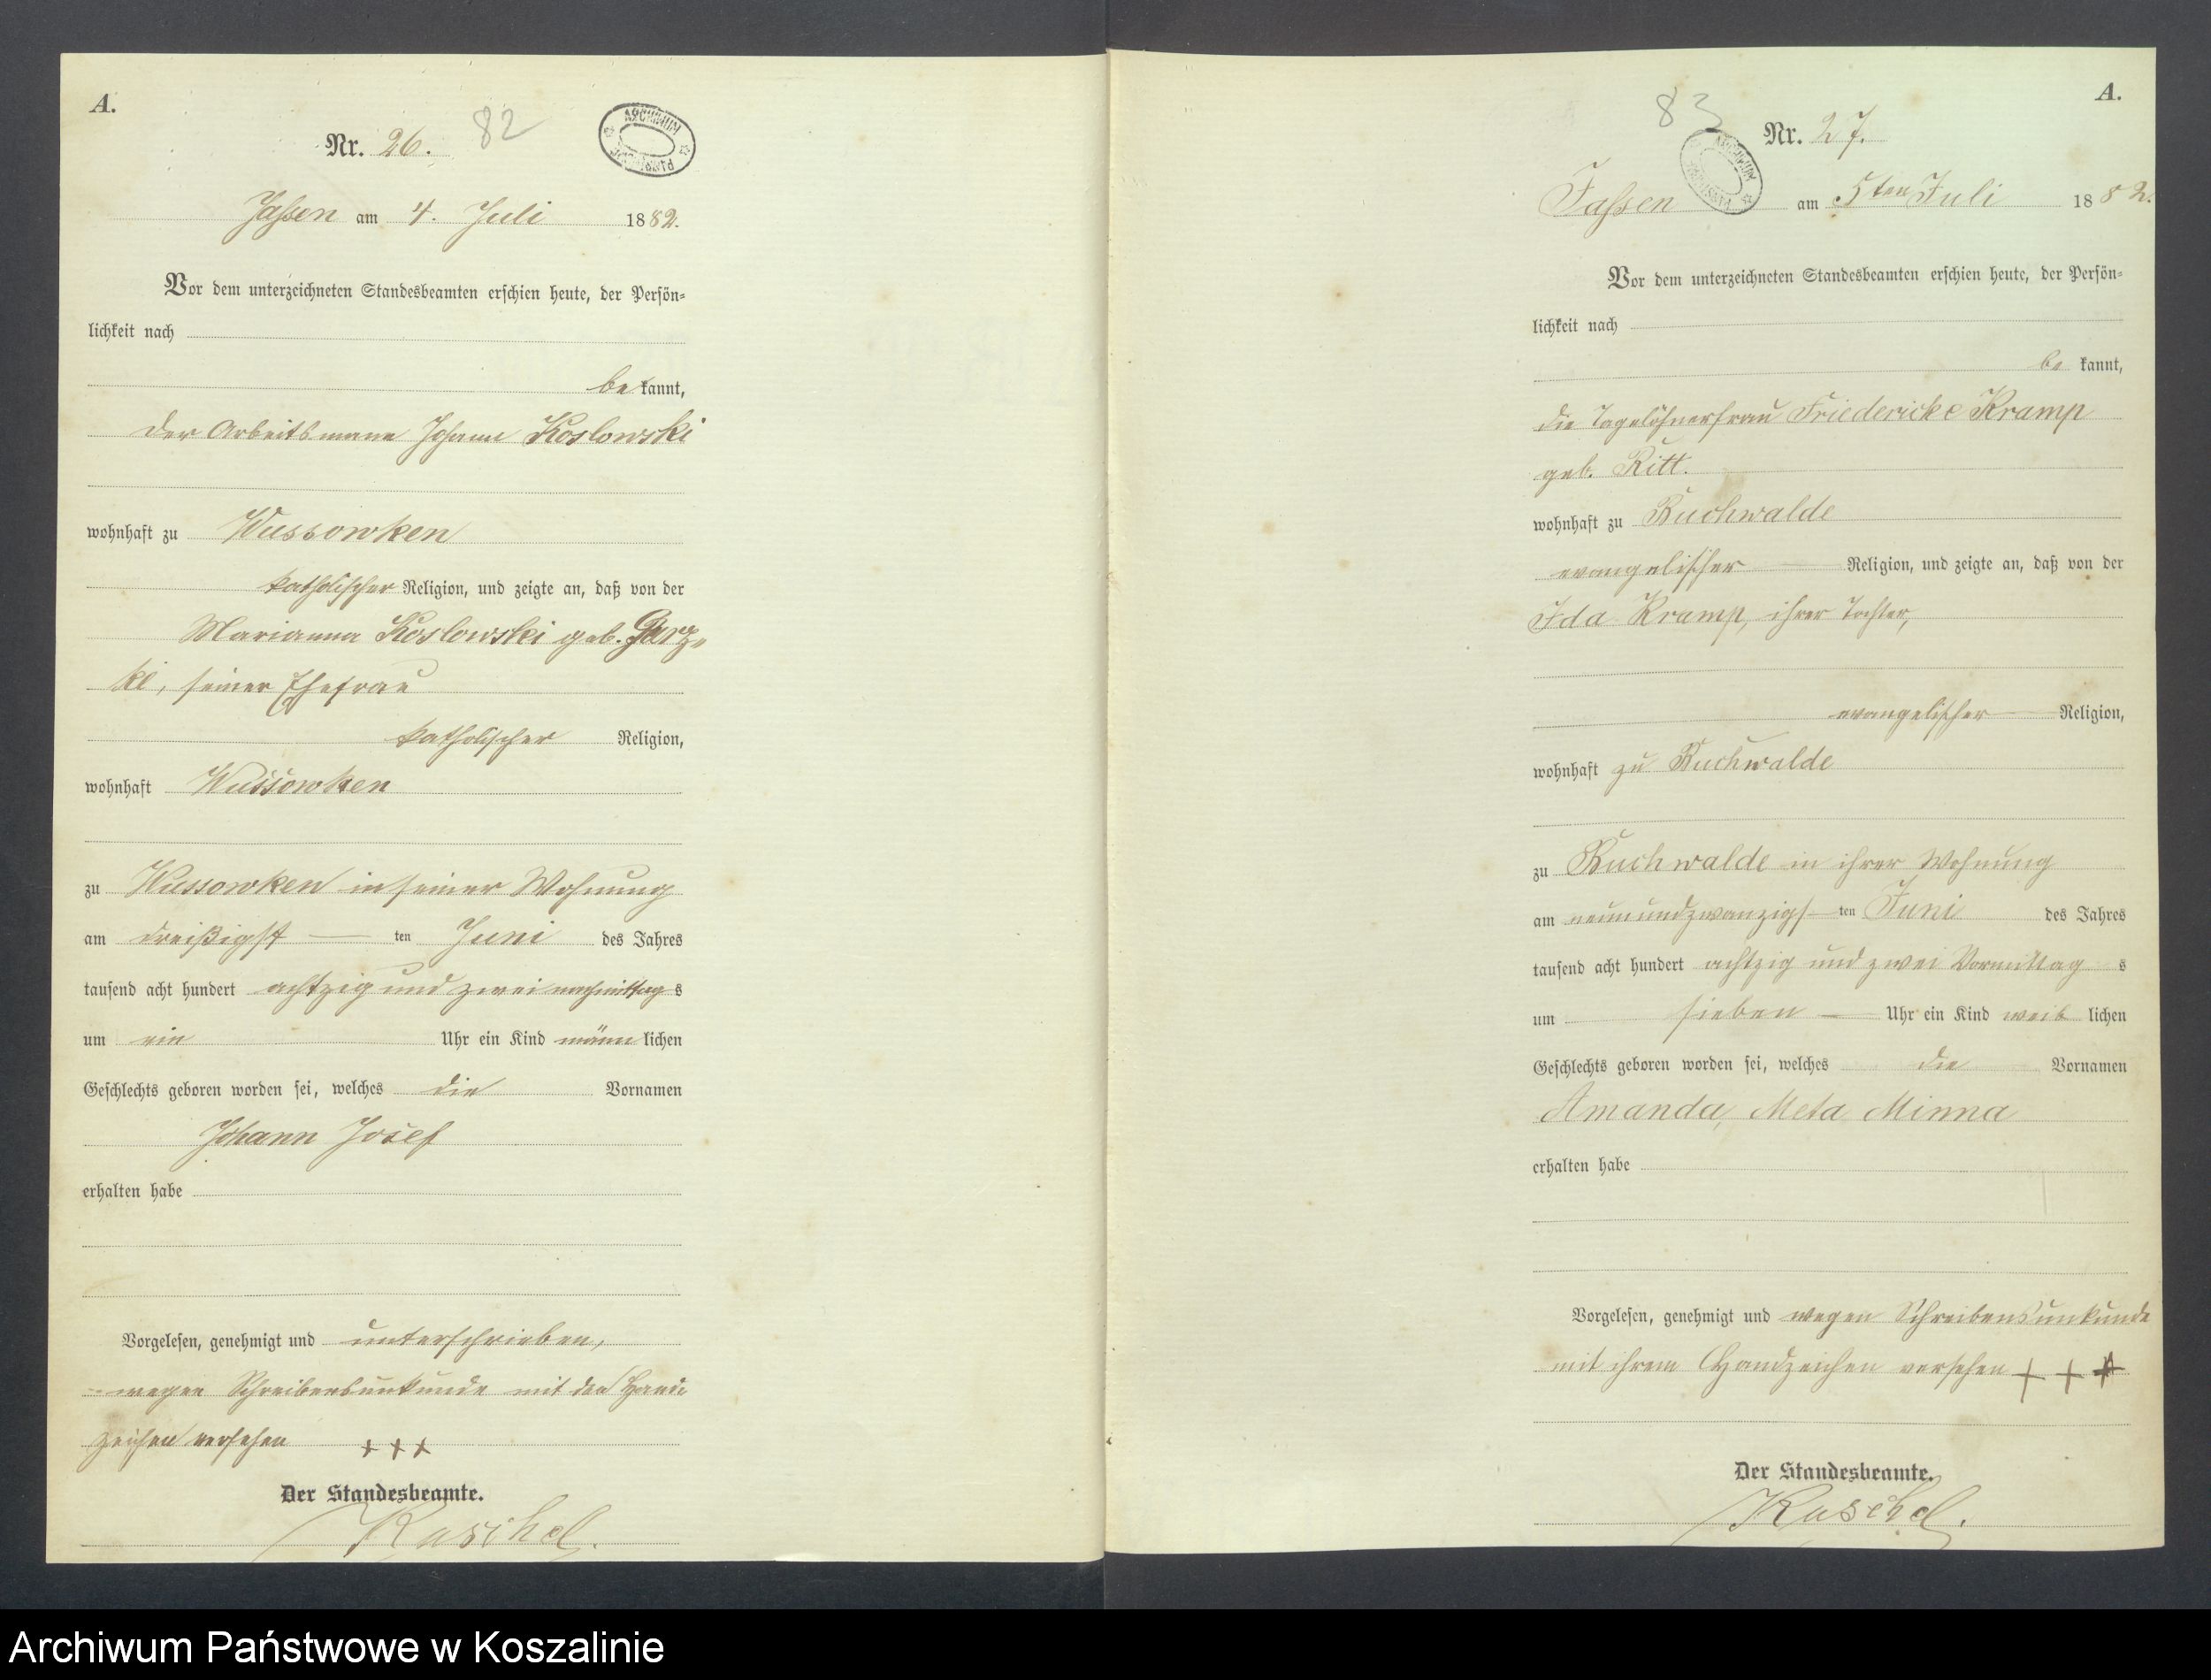 A.
Nr. 26.
82
ARCHIWUM
Jassen am 4. Juli 1882.
Vor dem unterzeichneten Standesbeamten erschien heute, der Persön-
lichkeit nach
be kannt,
der Arbeitsmann Johann Koslowski
wohnhaft zu Wussowken
katholischer Religion, und zeigte an, daß von der
Marianna Koslowski geb. Garz-
ki, seiner Ehefrau
katholischer Religion,
wohnhaft Wussowken
zu Wussowken in seiner Wohnung
am dreißigst ten Juni des Jahres
tausend acht hundert achtzig und zwei nachmittag s
um ein Uhr ein Kind männ lichen
Geschlechts geboren worden sei, welches die Vornamen
Johann Josef
erhalten habe
Vorgelesen, genehmigt und unterschrieben,
wegen Schreibensunkunde mit den Hand
zeichen versehen +++
Der Standesbeamte.
Kuschel.
A.
83
Nr. 27.
ARCHIWUM
Jassen am 5ten Juli 1882.
Vor dem unterzeichneten Standesbeamten erschien heute, der Persön-
lichkeit nach
be kannt,
die Tagelöhnerfrau Friedericke Kramp
geb. Ritt.
wohnhaft zu Buchwalde
evangelischer Religion, und zeigte an, daß von der
Ida Kramp, ihrer Tochter,
evangelischer Religion,
wohnhaft zu Buchwalde
zu Buchwalde in ihrer Wohnung
am neunundzwanzigs ten Juni des Jahres
tausend acht hundert achtzig und zwei Vormittag s
um sieben Uhr ein Kind weib lichen
Geschlechts geboren worden sei, welches die Vornamen
Amanda, Meta Minna
erhalten habe
Vorgelesen, genehmigt und wegen Schreibensunkunde
mit ihrem Handzeichen versehen +++
Der Standesbeamte.
Kuschel.
Archiwum Państwowe w Koszalinie